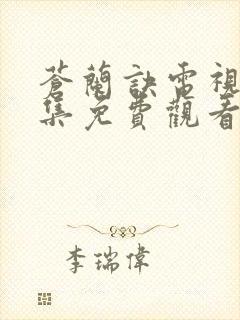 蒼蘭訣電視
集免費觀看
李瑞偉